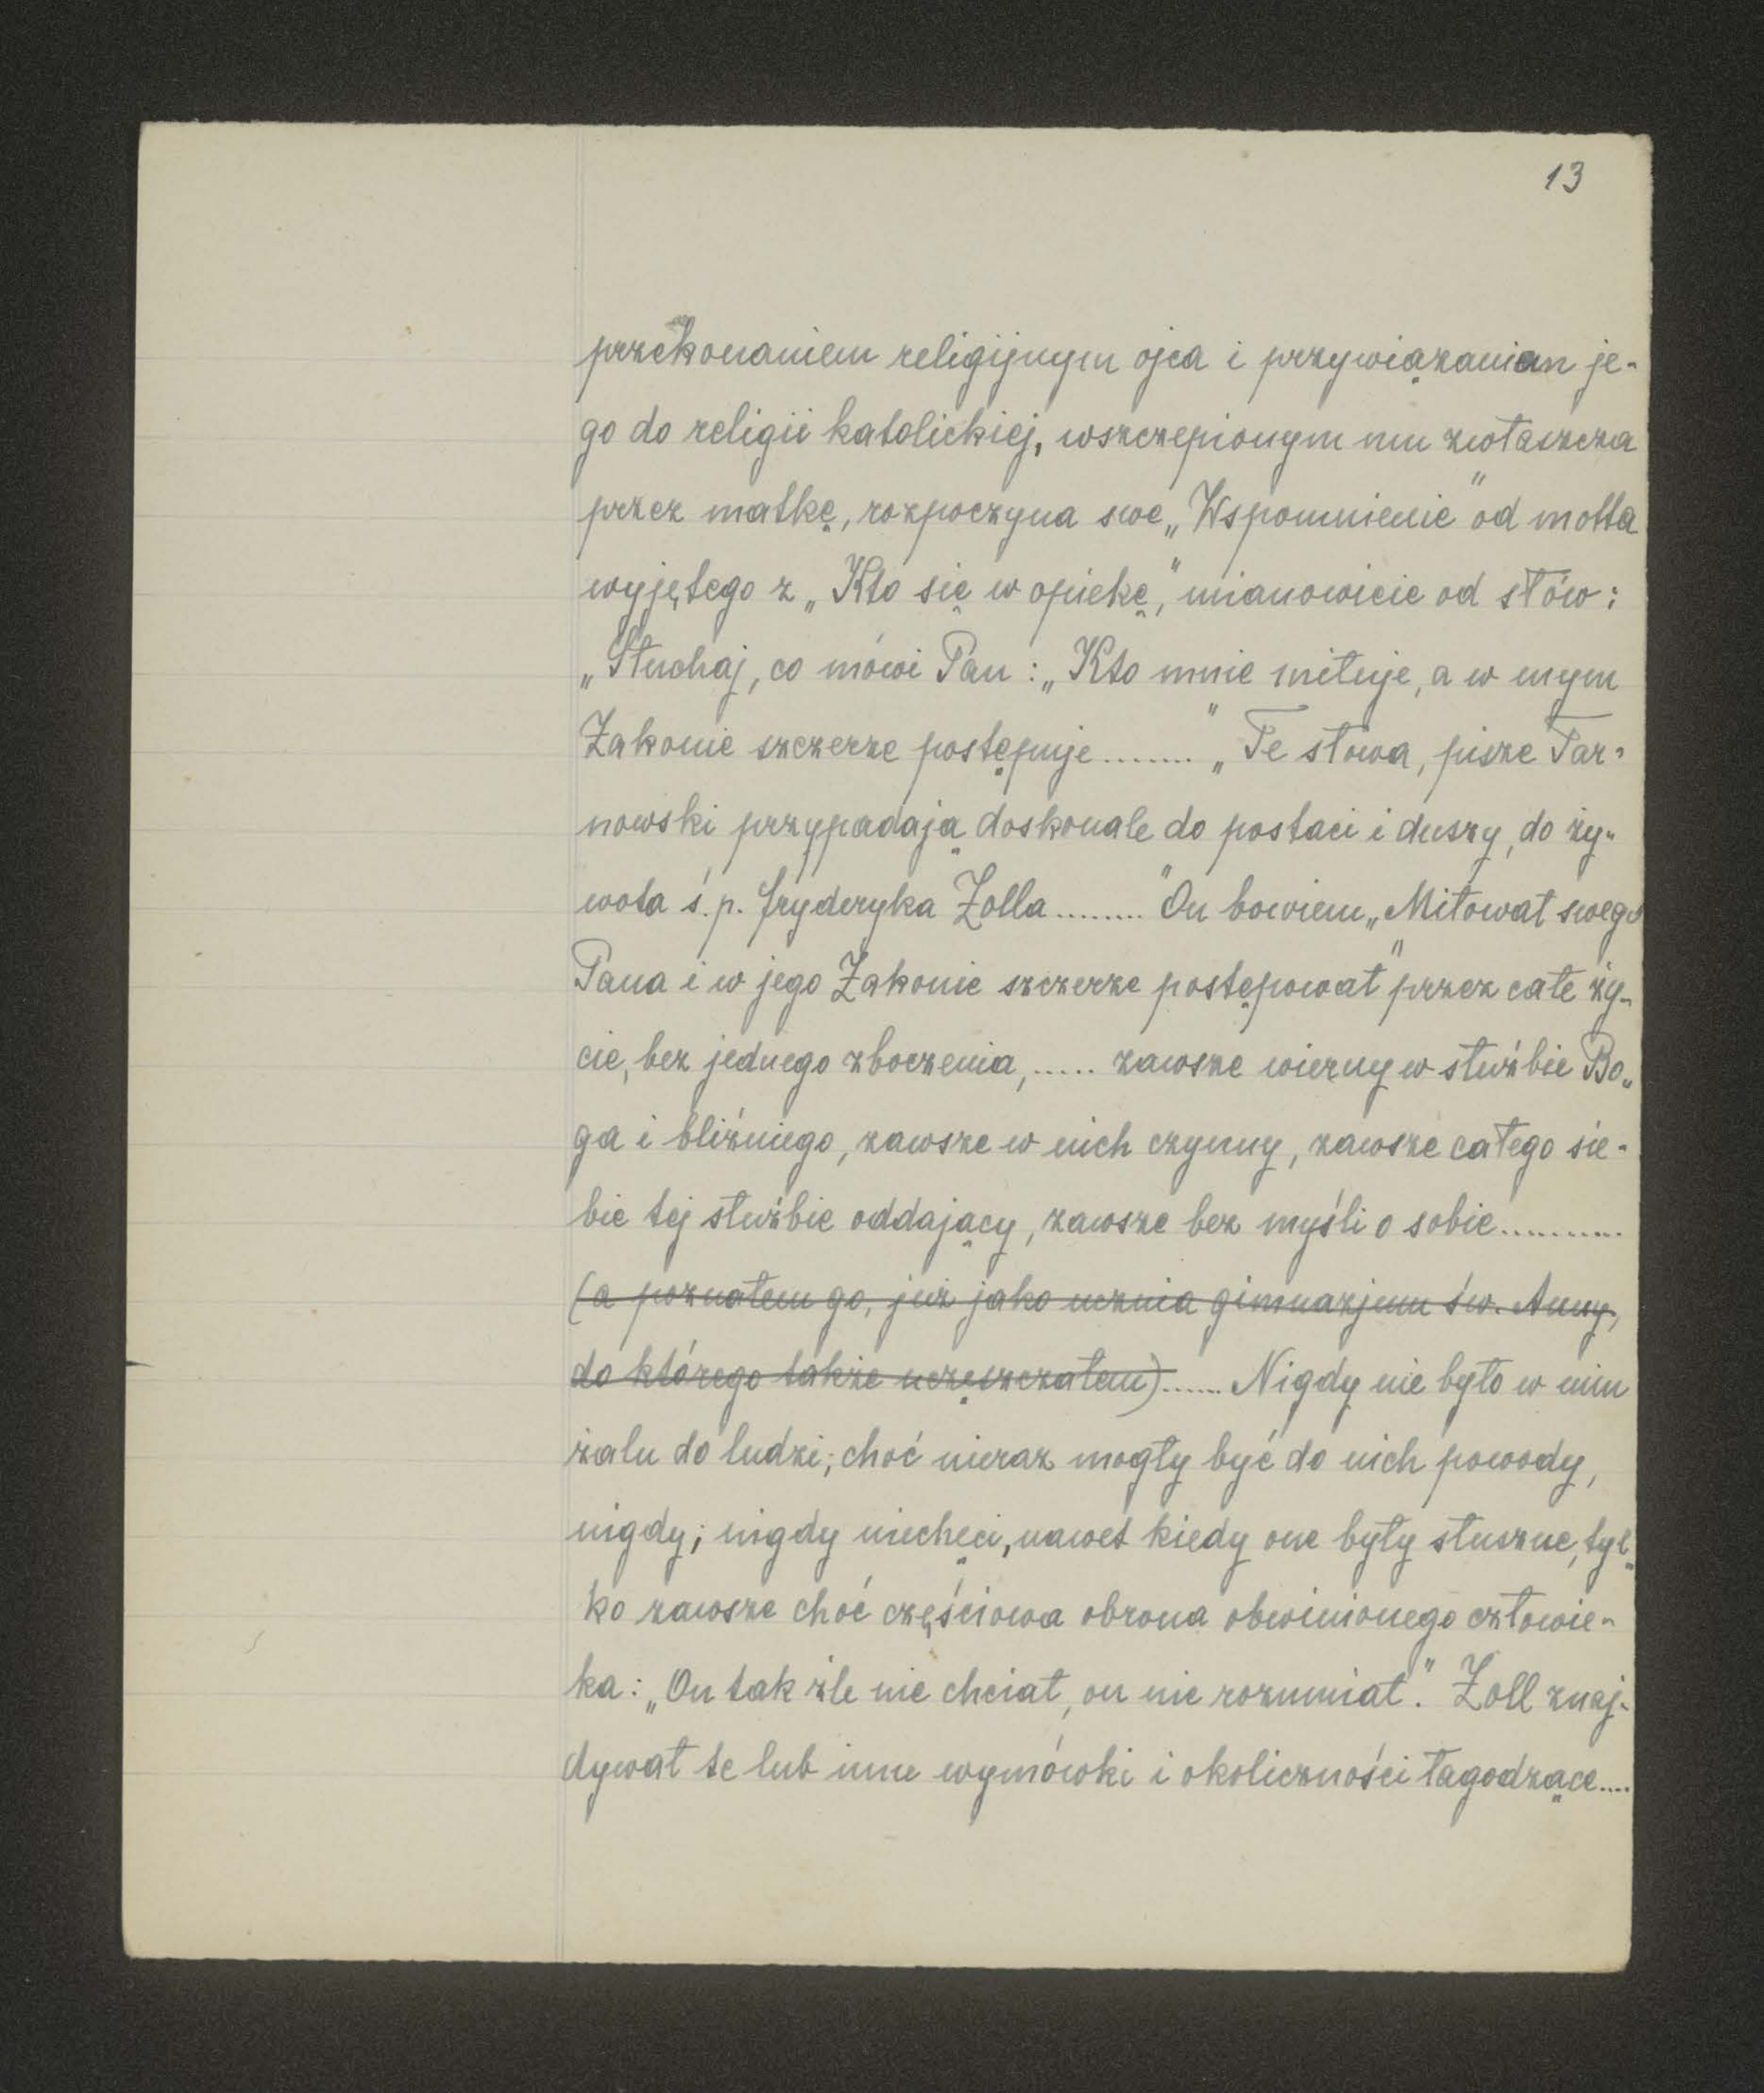 13
przekonaniem religijnym ojca i przywiązaniem je-
go do religii katolickiej, wszczepionym mu zwłaszcza
przez matkę, rozpoczyna swe „Wspomnienie" od motta
wyjętego z „Kto się w opiekę," mianowicie od słów:
„Słuchaj, co mówi Pan: „Kto mnie miłuje, a w mym
Zakonie szczerze postępuje........" „Te słowa, pisze Tar-
nowski przypadają doskonale do postaci i duszy, do ży-
wota ś.p. Fryderyka Zolla........." On bowiem „Miłował swego
Pana i w jego Zakonie szczerze postępował" przez całe ży-
cie, bez jednego zboczenia,...... zawsze wierny w służbie Bo-
ga i bliźniego, zawsze w nich czynny, zawsze całego sie-
bie tej służbie oddający, zawsze bez myśli o sobie...........
(a poznałem go, już jako ucznia gimnazjum św. Anny,
do którego także uczęszczałem)...... Nigdy nie było w nim
żalu do ludzi; choć nieraz mogły być do nich powody,
nigdy; nigdy niechęci, nawet kiedy one były słuszne, tyl-
ko zawsze choć częściowa obrona obwinionego człowie-
ka: „On tak źle nie chciał, on nie rozumiał." Zoll znaj-
dywał te lub inne wymówki i okoliczności łagodzące....